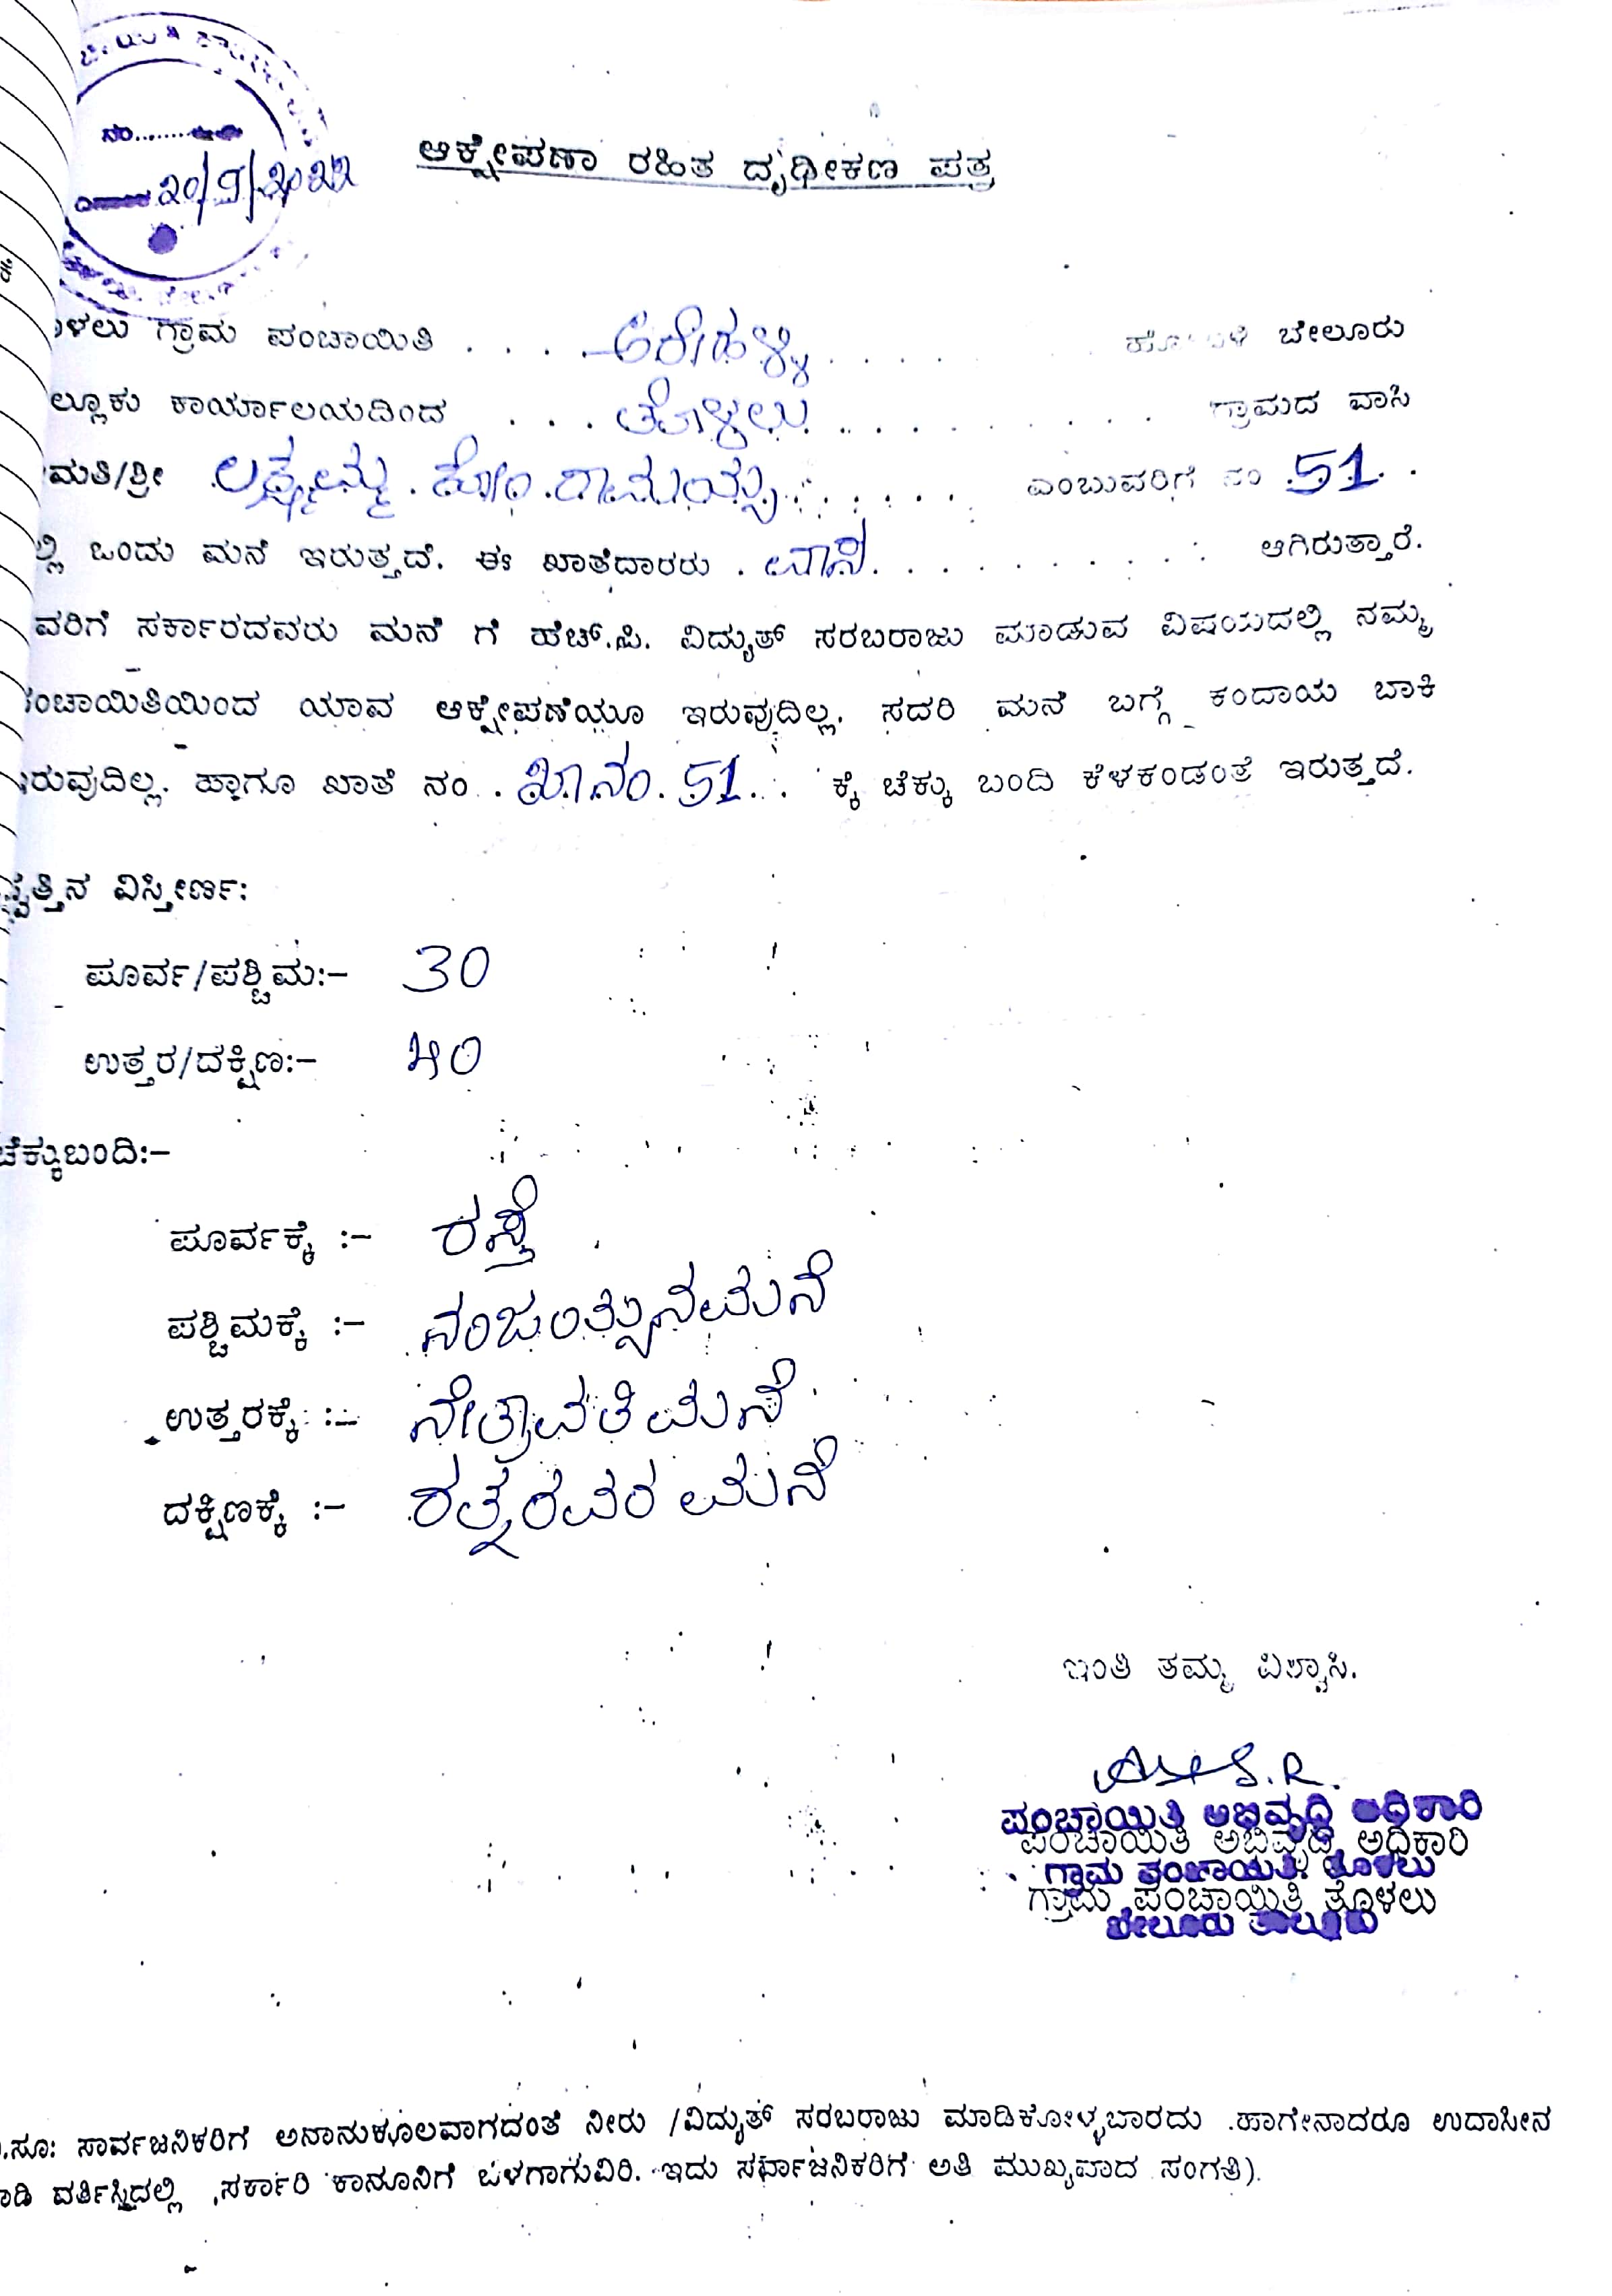 ನಂ.........
20/9/2022
ಆಕ್ಷೇಪಣಾ ರಹಿತ ದೃಢೀಕಣ ಪತ್ರ
ಳಲು ಗ್ರಾಮ ಪಂಚಾಯಿತಿ . . . . ಅರೇಹಳ್ಳಿ . . . . . ಬೇಲೂರು
ಲ್ಲೂಕು ಕಾರ್ಯಾಲಯದಿಂದ . . . ತೊಳಲು . . . . . . . . . . ಗ್ರಾಮದ ವಾಸಿ
ಮತಿ/ಶ್ರೀ ಲಕ್ಷ್ಮಮ್ಮ . ಕೋಂ . ರಾಮಯ್ಯ . . . . . . ಎಂಬುವರಿಗೆ ನಂ 51 . .
ಲ್ಲಿ ಒಂದು ಮನೆ ಇರುತ್ತದೆ. ಈ ಖಾತೆದಾರರು . ವಾಸಿ . . . . . . . . . . . ಆಗಿರುತ್ತಾರೆ.
ವರಿಗೆ ಸರ್ಕಾರದವರು ಮನೆ ಗೆ ಹೆಚ್.ಪಿ. ವಿದ್ಯುತ್ ಸರಬರಾಜು ಮಾಡುವ ವಿಷಯದಲ್ಲಿ ನಮ್ಮ
ಂಚಾಯಿತಿಯಿಂದ ಯಾವ ಆಕ್ಷೇಪಣೆಯೂ ಇರುವುದಿಲ್ಲ. ಸದರಿ ಮನೆ ಬಗ್ಗೆ ಕಂದಾಯ ಬಾಕಿ
ರುವುದಿಲ್ಲ. ಹಾಗೂ ಖಾತೆ ನಂ . ಖಾನಂ . 51 . . ಕ್ಕೆ ಚೆಕ್ಕು ಬಂದಿ ಕೆಳಕಂಡಂತೆ ಇರುತ್ತದೆ.
ಸ್ವತ್ತಿನ ವಿಸ್ತೀರ್ಣ:
ಪೂರ್ವ/ಪಶ್ಚಿಮ:- 30
ಉತ್ತರ/ದಕ್ಷಿಣ:- 40
ಚೆಕ್ಕುಬಂದಿ:-
ಪೂರ್ವಕ್ಕೆ :- ರಸ್ತೆ
ಪಶ್ಚಿಮಕ್ಕೆ :-
ಉತ್ತರಕ್ಕೆ :- ನೇತ್ರಾವತಿ ಮನೆ
ದಕ್ಷಿಣಕ್ಕೆ :- ರತ್ನರವರ ಮನೆ
ಇಂತಿ ತಮ್ಮ ವಿಶ್ವಾಸಿ.
ಪಂಚಾಯಿತಿ ಅಭಿವೃದ್ಧಿ ಅಧಿಕಾರಿ
ಪಂಚಾಯಿತಿ ಅಭಿವೃದ್ಧಿ ಅಧಿಕಾರಿ
ಗ್ರಾಮ ಪಂಚಾಯಿತಿ. ತೊಳಲು
ಗ್ರಾಮ ಪಂಚಾಯಿತಿ ತೊಳಲು
ಬೇಲೂರು ತಾಲ್ಲೂಕು
.ಸೂ: ಸಾರ್ವಜನಿಕರಿಗೆ ಅನಾನುಕೂಲವಾಗದಂತೆ ನೀರು /ವಿದ್ಯುತ್ ಸರಬರಾಜು ಮಾಡಿಕೋಳ್ಳಬಾರದು .ಹಾಗೇನಾದರೂ ಉದಾಸೀನ
ಾಡಿ ವರ್ತಿಸಿದಲ್ಲಿ ,ಸರ್ಕಾರಿ ಕಾನೂನಿಗೆ ಒಳಗಾಗುವಿರಿ. ಇದು ಸರ್ವಾಜನಿಕರಿಗೆ ಅತಿ ಮುಖ್ಯವಾದ ಸಂಗತಿ).